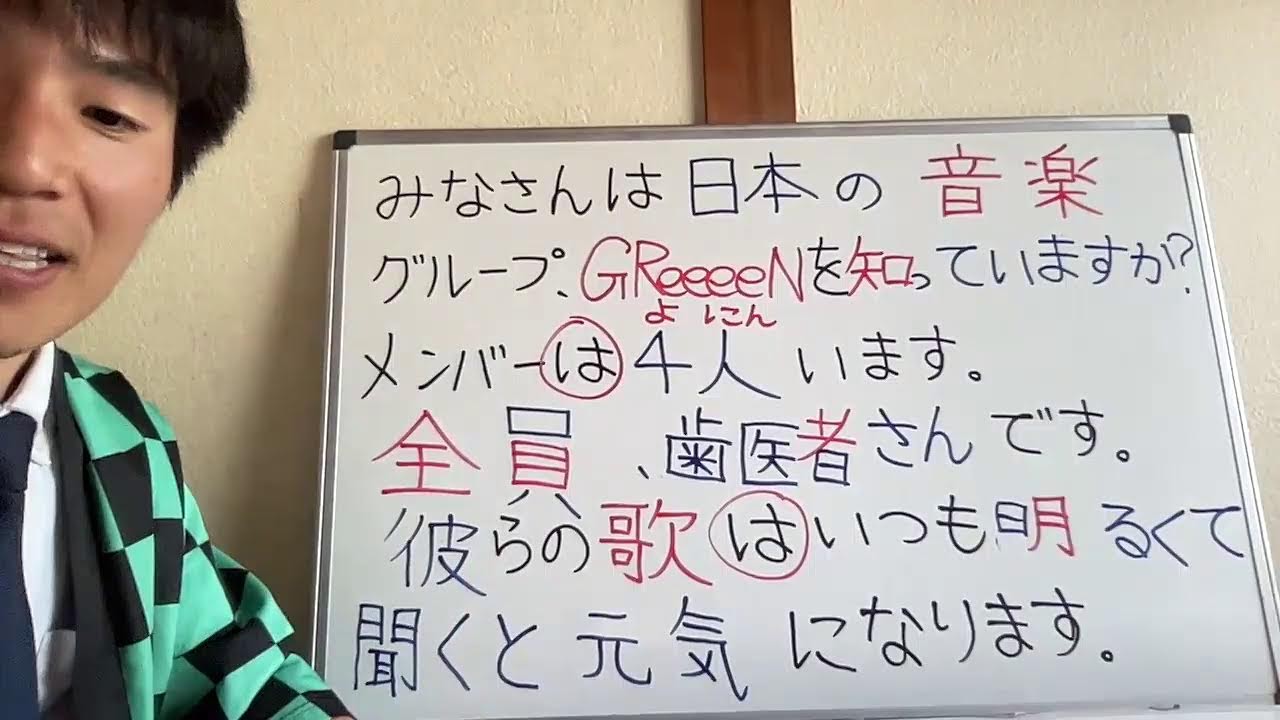 みなさんは日本の音楽
グループ、GReeeeNを知っていますか?
よにん
メンバーは4人います。
全員、歯医者さんです。
彼らの歌はいつも明るくて
聞くと元気になります。